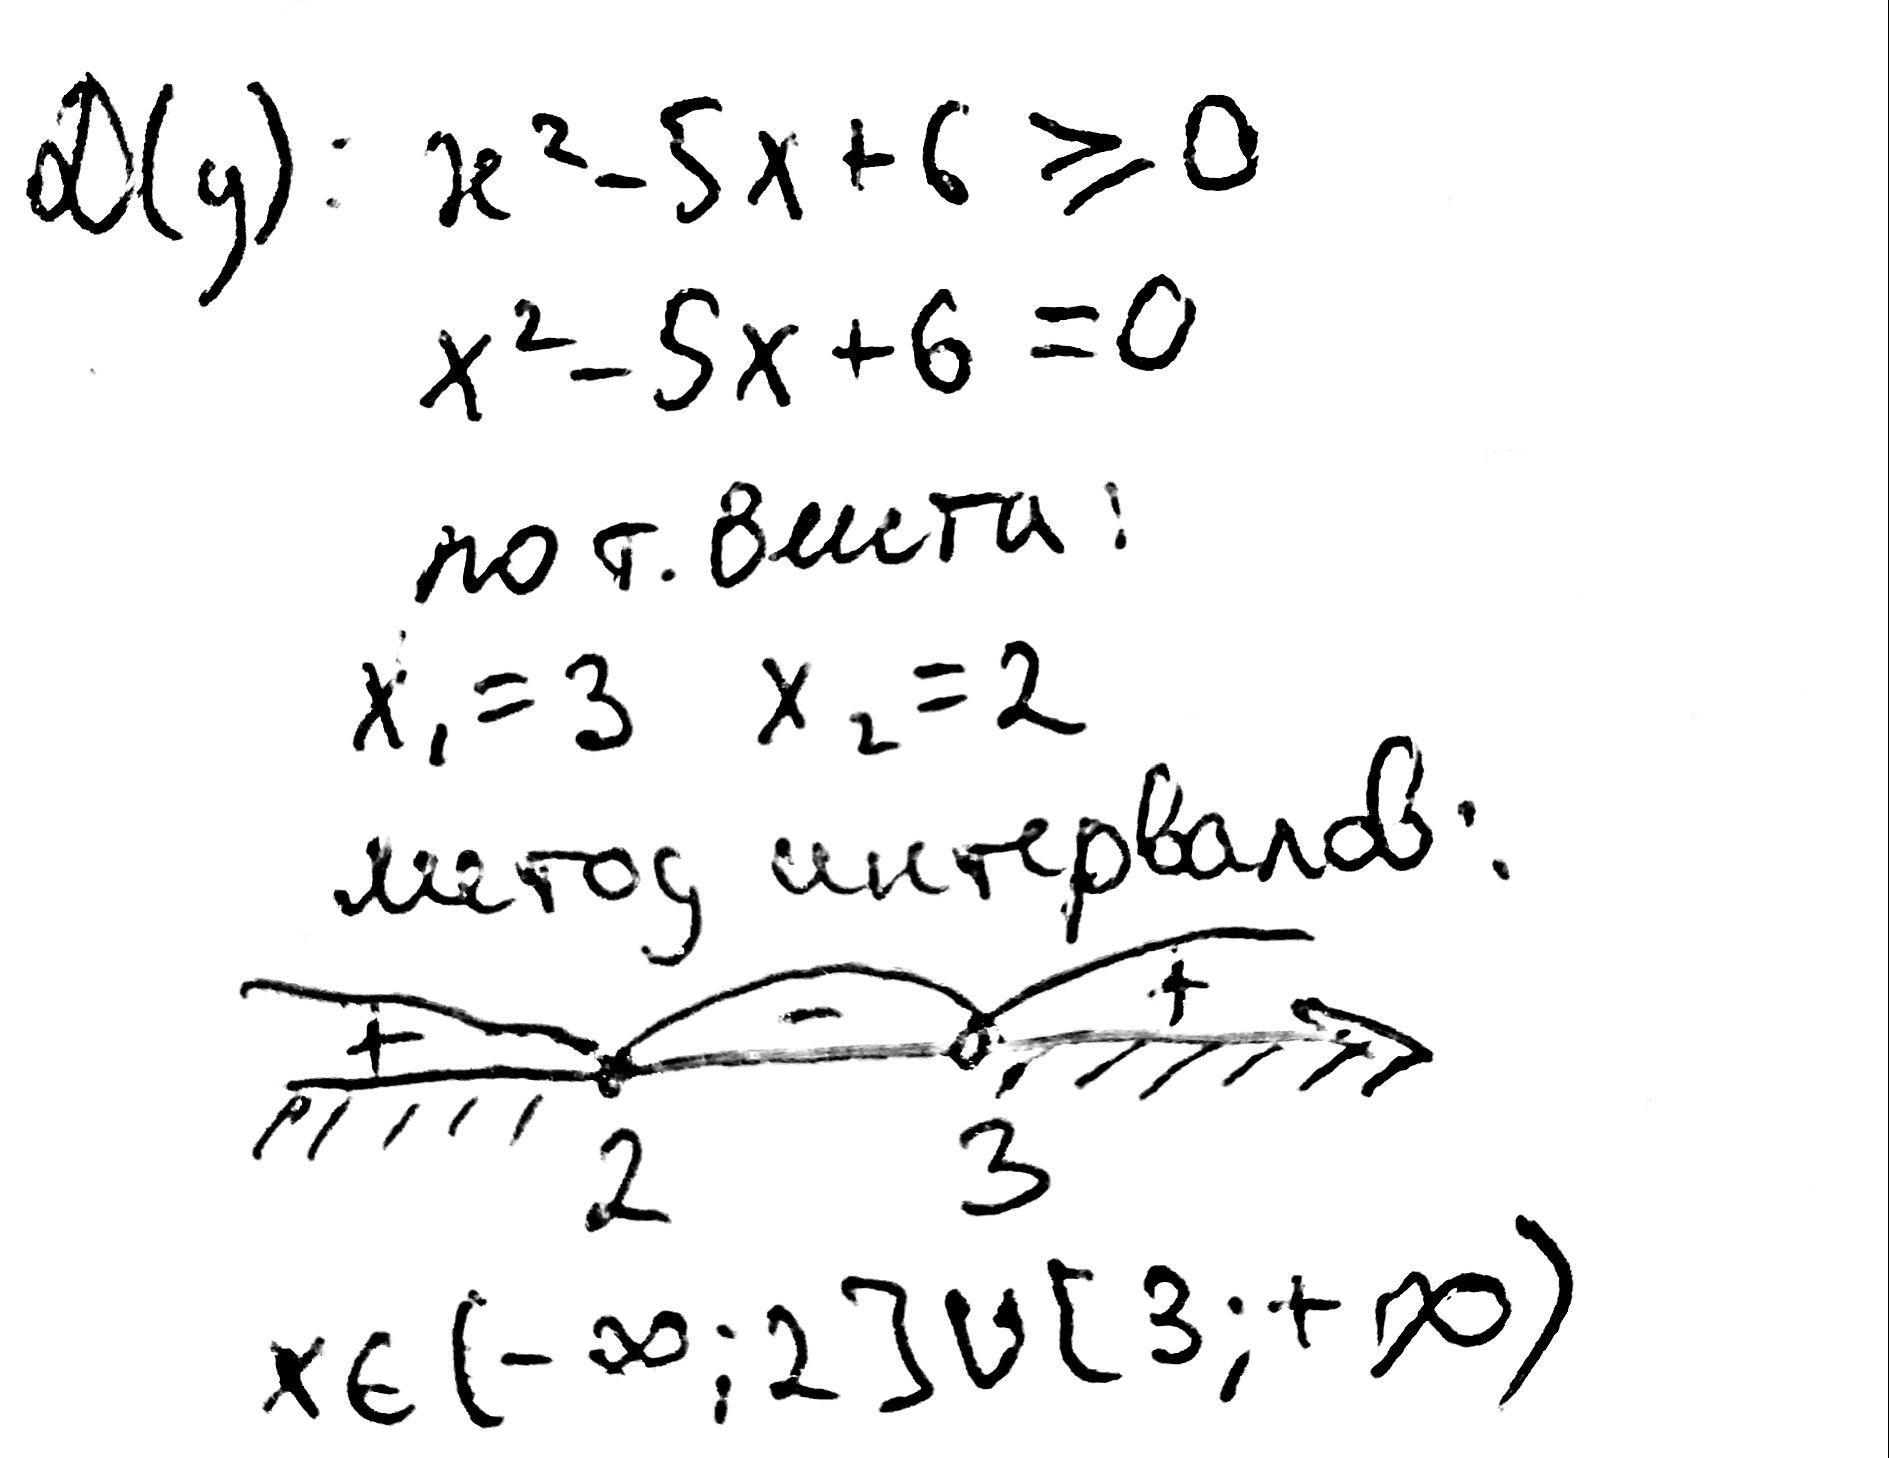 D(y): x² - 5x + 6 ⩾ 0
x² - 5x + 6 = 0
по т. Виета:
x₁ = 3 x₂ = 2
метод интервалов:
+ - +
2 3
x ∈ (-∞; 2] ∪ [3; +∞)